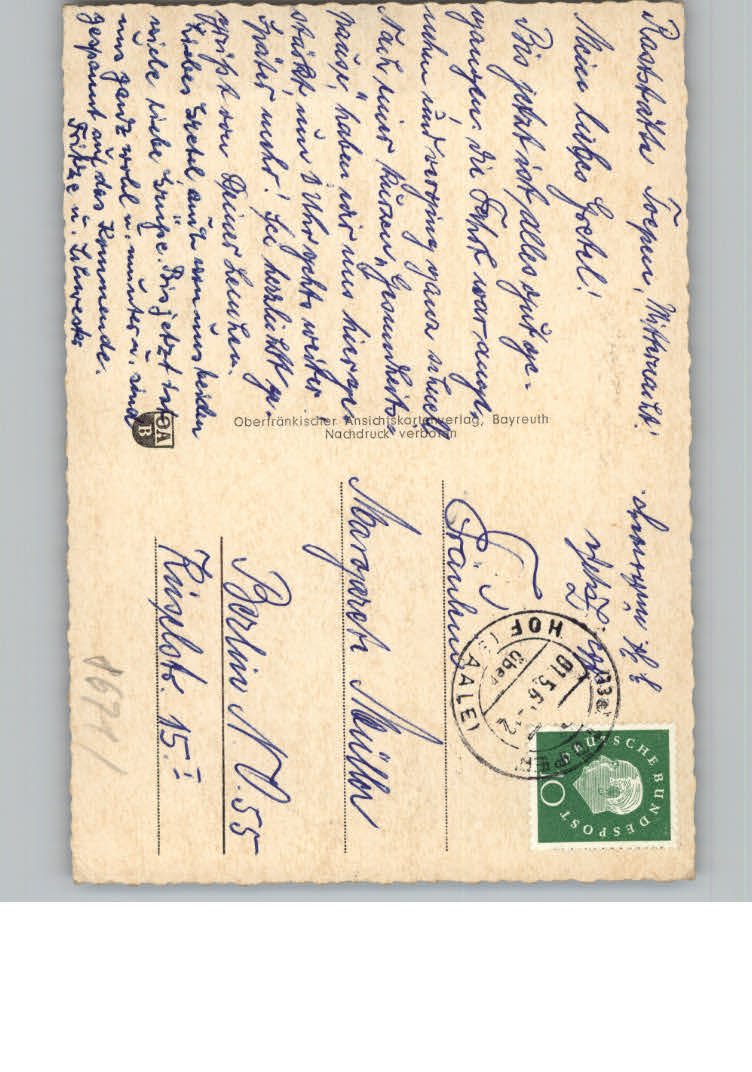 Raststätte Töpen, Mitternacht!
Mein liebes Gretel!
Bis jetzt ist alles gut ge-
gangen. Die Fahrt war ange-
nehm und verging ganz schnell
Nach einer kurzen „Gesundheits-
pause“ haben wir uns hier ge-
stärkt nun 1 Uhr gehts weiter.
Später mehr! Sei herzlichst ge-
grüßt von Deiner Lenchen.
Liebes Gretel auch von uns beiden
viele liebe Grüße. Bis jetzt ist
uns ganz wohl u. munter u. sind
gespannt auf das Kommende.
u.
Oberfränkischer Ansichtskartenverlag, Bayreuth
Nachdruck verboten
OA
B
Fräulein
Margarete Müller
Berlin N.O. 55
Käselstr. 15 I
z. Zt.
HOF (SAALE)
über
DEUTSCHE BUNDESPOST
10